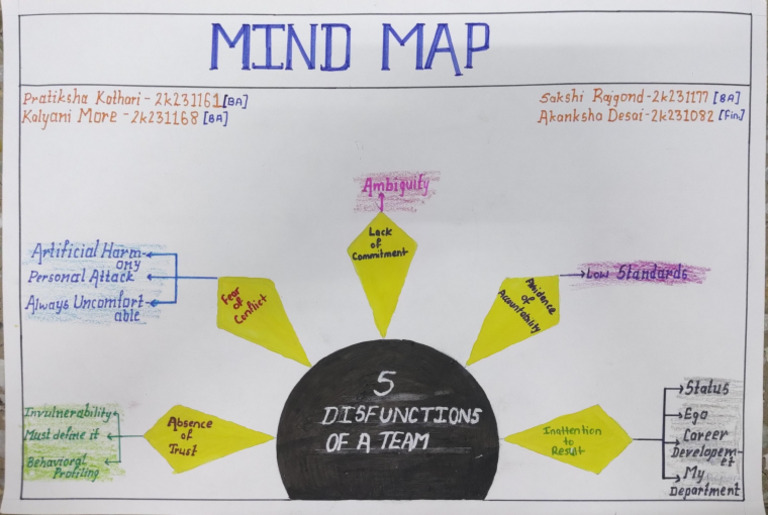 MIND MAP
Pratiksha Kothari - 2k231161 [BA]
Kalyani More - 2k231168 [BA]
Sakshi Rajgond - 2k231177 [BA]
Akanksha Desai - 2k231082 [Fin]
Ambiguity
Lack
of
Commitment
Artificial Harm-
ony
Personal Attack
Always Uncomfort
able
Fear
of
Conflict
Avoidance
of
Accountability
Low Standards
5
DISFUNCTIONS
OF A TEAM
Invulnerability
Must define it
Behavioral
Profiling
Absence
of
Trust
Inattention
to
Result
Status
Ego
Career
Developem-
et
My
Department